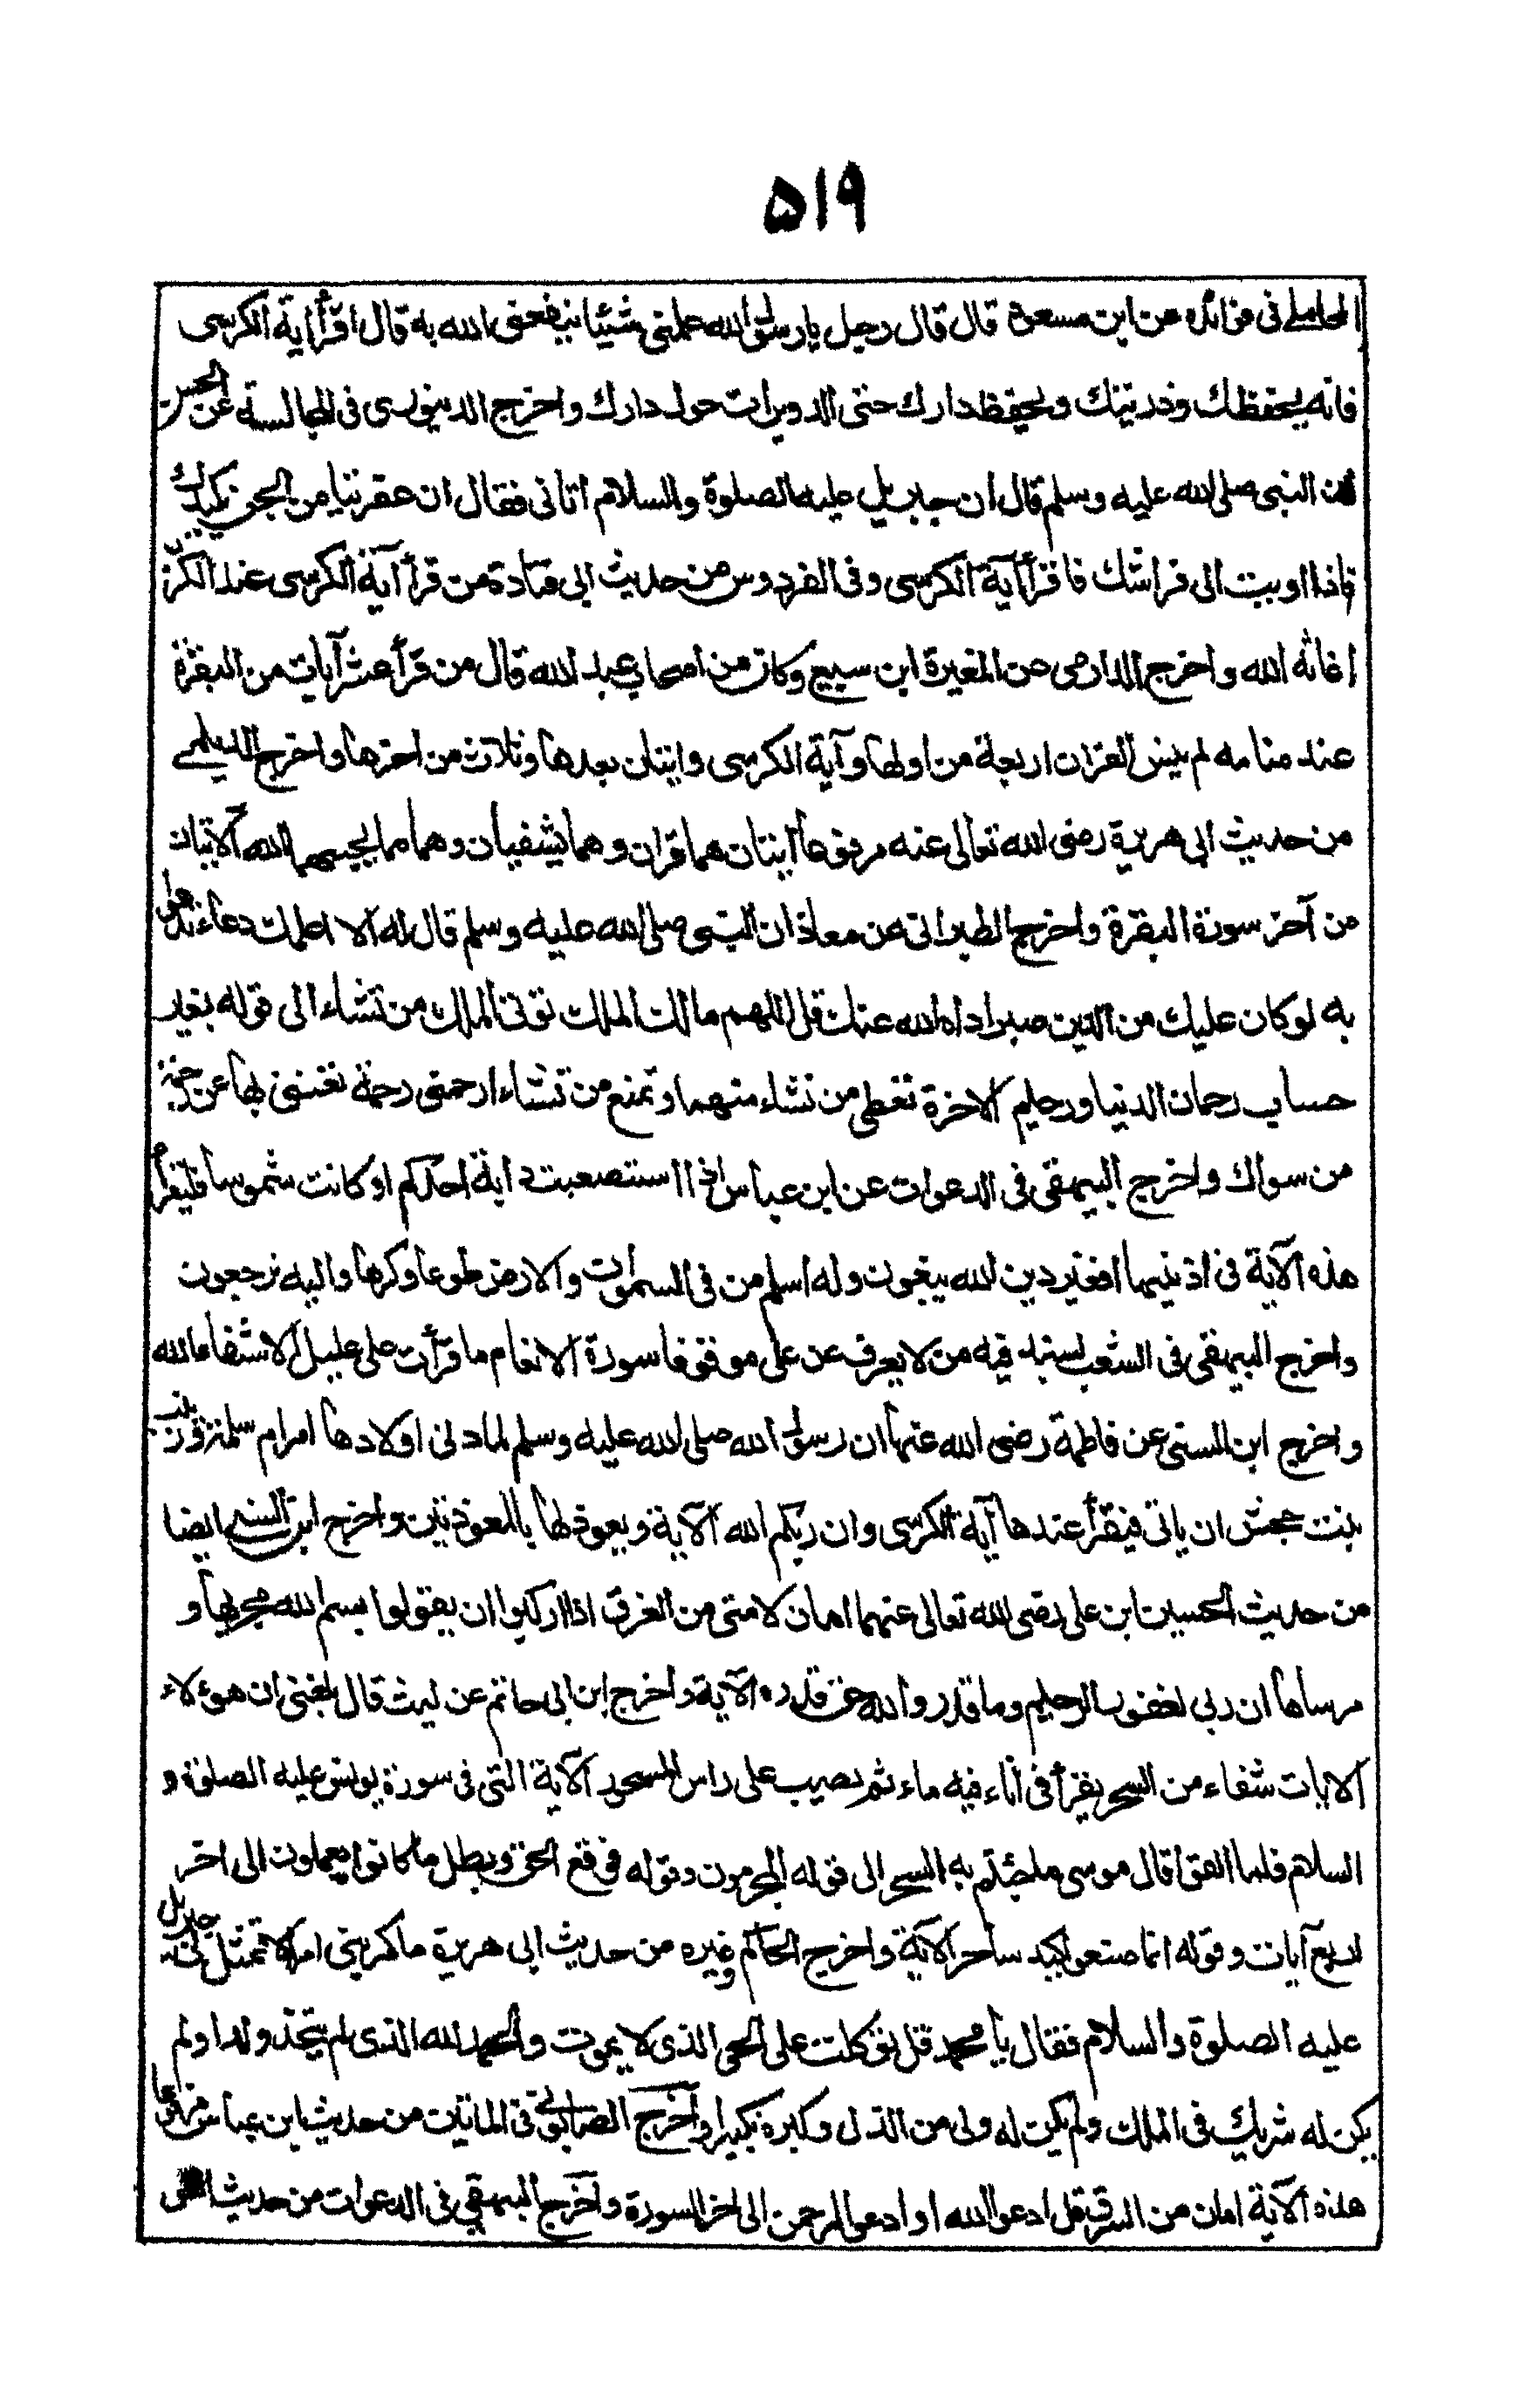 ٥١٩
المحاملى فى فوائده عن ابن مسعود قال قال رجل يا رسول الله علمنى شيئا ينفعنى الله به قال اقرأ اية الكرسى
فانه يحفظك وذريتك ويحفظ دارك حتى الدويرات حول دارك واخرج الدينورى فى المجالسة عن الحسن
ان النبى صلى الله عليه وسلم قال ان جبريل عليه الصلوة والسلام اتانى فقال ان عفريتا من الجن يكيدك
فاذا اويت الى فراشك فاقرأ آية الكرسى وفى الفردوس من حديث ابى قتادة من قرأ آية الكرسى عند الكرب
اغاثه الله واخرج الدارمى عن المغيرة ابن سبيع وكان من اصحاب عبد الله قال من قرأ عشر آيات من البقرة
عند منامه لم ينس القران اربعة من اولها وآية الكرسى وايتان بعدها وثلاث من اخرها واخرج الديلمى
من حديث ابى هريرة رضى الله تعالى عنه مرفوعا ايتان هما قران وهما يشفيان وهما مما يحبهما الله الايتان
من آخر سورة البقرة واخرج الطبرانى عن معاذ ان النبى صلى الله عليه وسلم قال له الا اعلمك دعاء تدعوا
به لو كان عليك من الدين صبر اداه الله عنك قل اللهم مالك الملك توتى الملك من تشاء الى قوله بغير
حساب رحمان الدنيا ورحيم الاخرة تعطى من تشاء منهما وتمنع من تشاء ارحمنى رحمة تغنينى بها عن رحمة
من سواك واخرج البيهقى فى الدعوات عن ابن عباس اذا استصعبت دابة احدكم او كانت شموسا فليقرأ
هذه الآية فى اذنيها افغير دين الله يبغون وله اسلم من فى السموات والارض طوعا وكرها واليه ترجعون
واخرج البيهقى فى الشعب بسند فيه من لا يعرف عن على موقوفا سورة الانعام ما قرأت على عليل الا شفاه الله
واخرج ابن السنى عن فاطمة رضى الله عنها ان رسول الله صلى الله عليه وسلم لما دنى اولادها امر ام سلمة وزينب
بنت جحش ان ياتى فيقرأ عندها آية الكرسى وان ربكم الله الآية ويعوذ لها بالمعوذتين واخرج ابن السنى ايضا
من حديث الحسين ابن على رضى الله تعالى عنهما امان لامتى من الغرق اذا اركبوا ان يقولوا بسم الله مجريها و
مرساها ان ربى لغفور الرحيم وما قدروا الله حق قدره الآية واخرج ابن ابى حاتم عن ليث قال بلغنى ان هؤلاء
الايات شفاء من السحر يقرأ فى اناء فيه ماء ثم يصب على راس المسحور الآية التى فى سورة يونس عليه الصلوة و
السلام فلما القوا قال موسى ما جئتم به السحر الى قوله المجرمون وقوله فوقع الحق وبطل ما كانوا يعملون الى اخر
اربع آيات وقوله انما صنعوا كيد ساحر الآية واخرج الحاكم وغيره من حديث ابى هريرة ما كربنى امر الا تمثل لى جبريل
عليه الصلوة والسلام فقال يا محمد قل توكلت على الحى الذى لا يموت والحمد لله الذى لم يتخذ ولدا ولم
يكن له شريك فى الملك ولم يكن له ولى من الذل وكبره تكبيرا واخرج الصابونى فى المائتين من حديث ابن عباس مرفوعا
هذه الآية امان من السرق قل ادعوا الله او ادعوا الرحمن الى اخر السورة واخرج البيهقى فى الدعوات من حديث